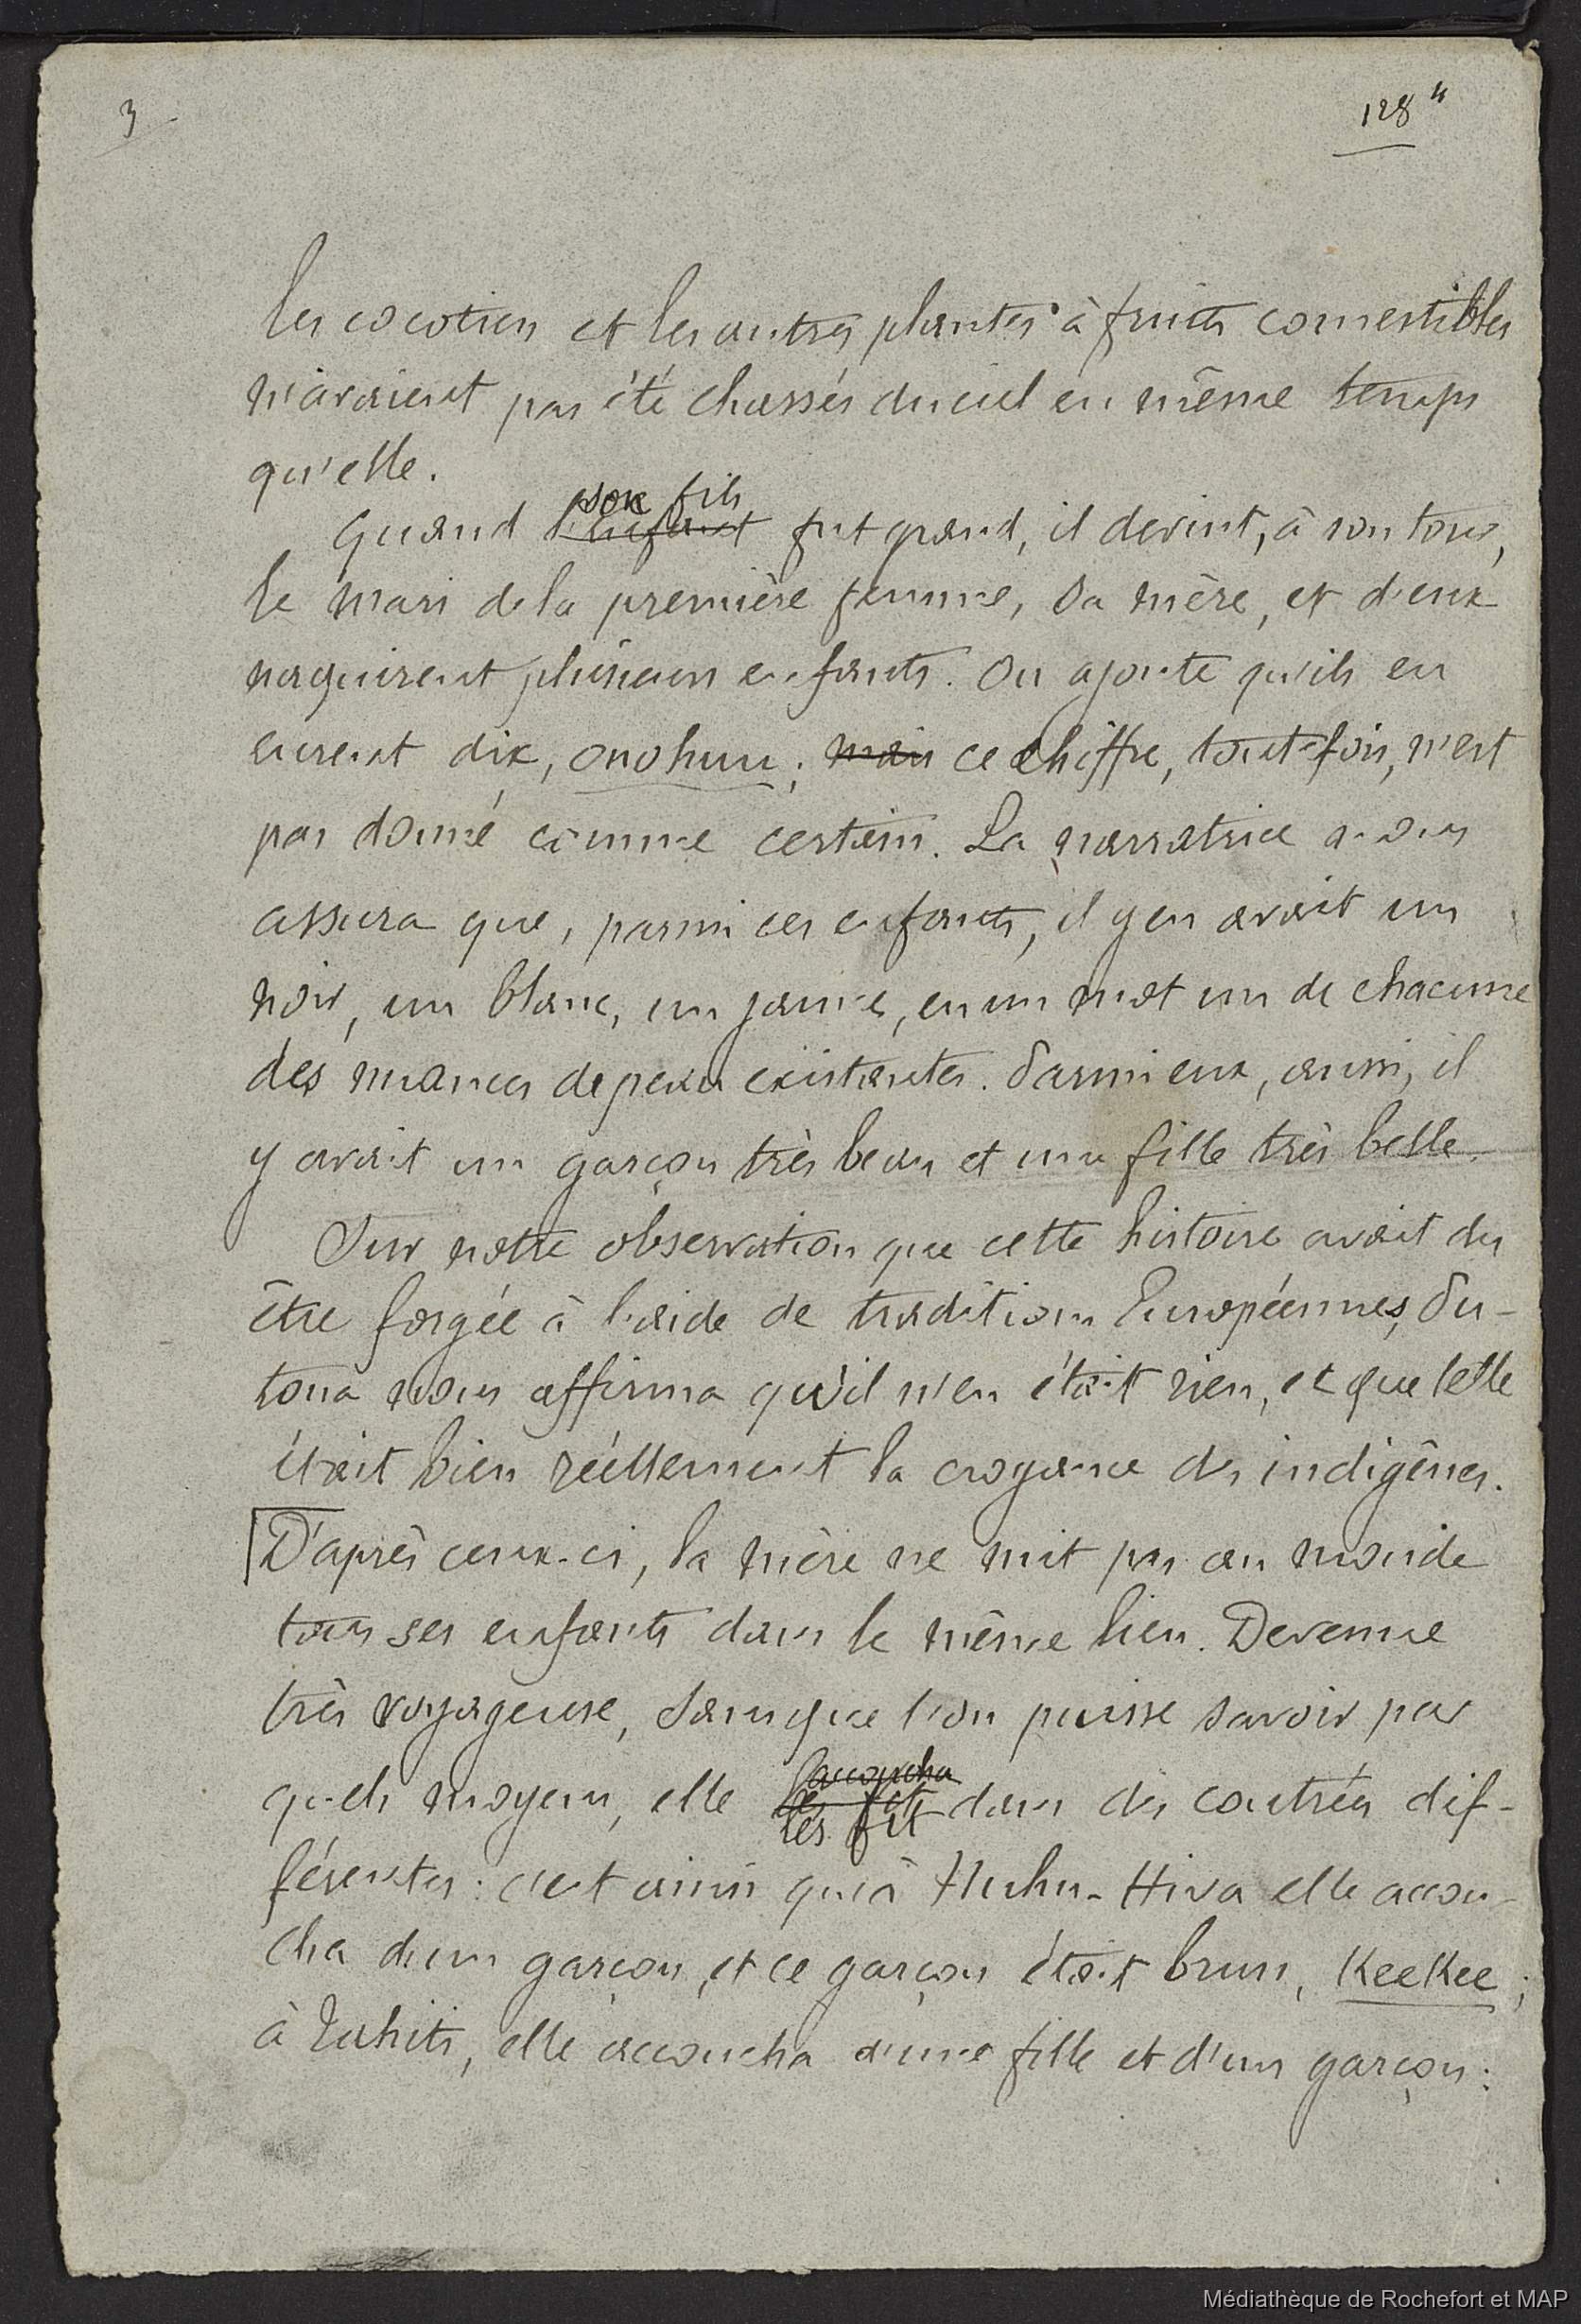 3
128"
les cocotiers et les autres plantes à fruits comestibles
n'avaient pas été chassés du ciel en même temps
qu'elle.
son fils
Quand l'enfant fut grand, il devint, à son tour,
le mari de la première femme, sa mère, et d'eux
naquirent plusieurs enfants. On ajoute qu'ils en
eurent dix, onohuu; mais ce chiffre, toutefois, n'est
pas donné comme certain. La narratrice nous
assura que, parmi ces enfants, il y en avait un
noir, un blanc, un jaune, en un mot un de chacune
des nuances de peau existantes. Parmi eux, aussi, il
y avait un garçon très beau et une fille très belle.
Sur notre observation que cette histoire avait du
être forgée à l'aide de traditions Européennes, Su-
toua nous affirma qu'il n'en était rien, et que telle
était bien réellement la croyance des indigênes.
D'après ceux-ci, la mère ne mit pas au monde
tous ses enfants dans le même lieu. Devenue
très voyageuse, sans que l'on puisse savoir par
accoucha
quels moyens, elle les fit dans des contrées dif-
les fit
férentes: c'est ainsi qu'à Nuhu-Hiva elle accou-
cha d'un garçon, et ce garçon était brun, KeeKee;
à Tahiti, elle accoucha d'une fille et d'un garçon:
Médiathèque de Rochefort et MAP